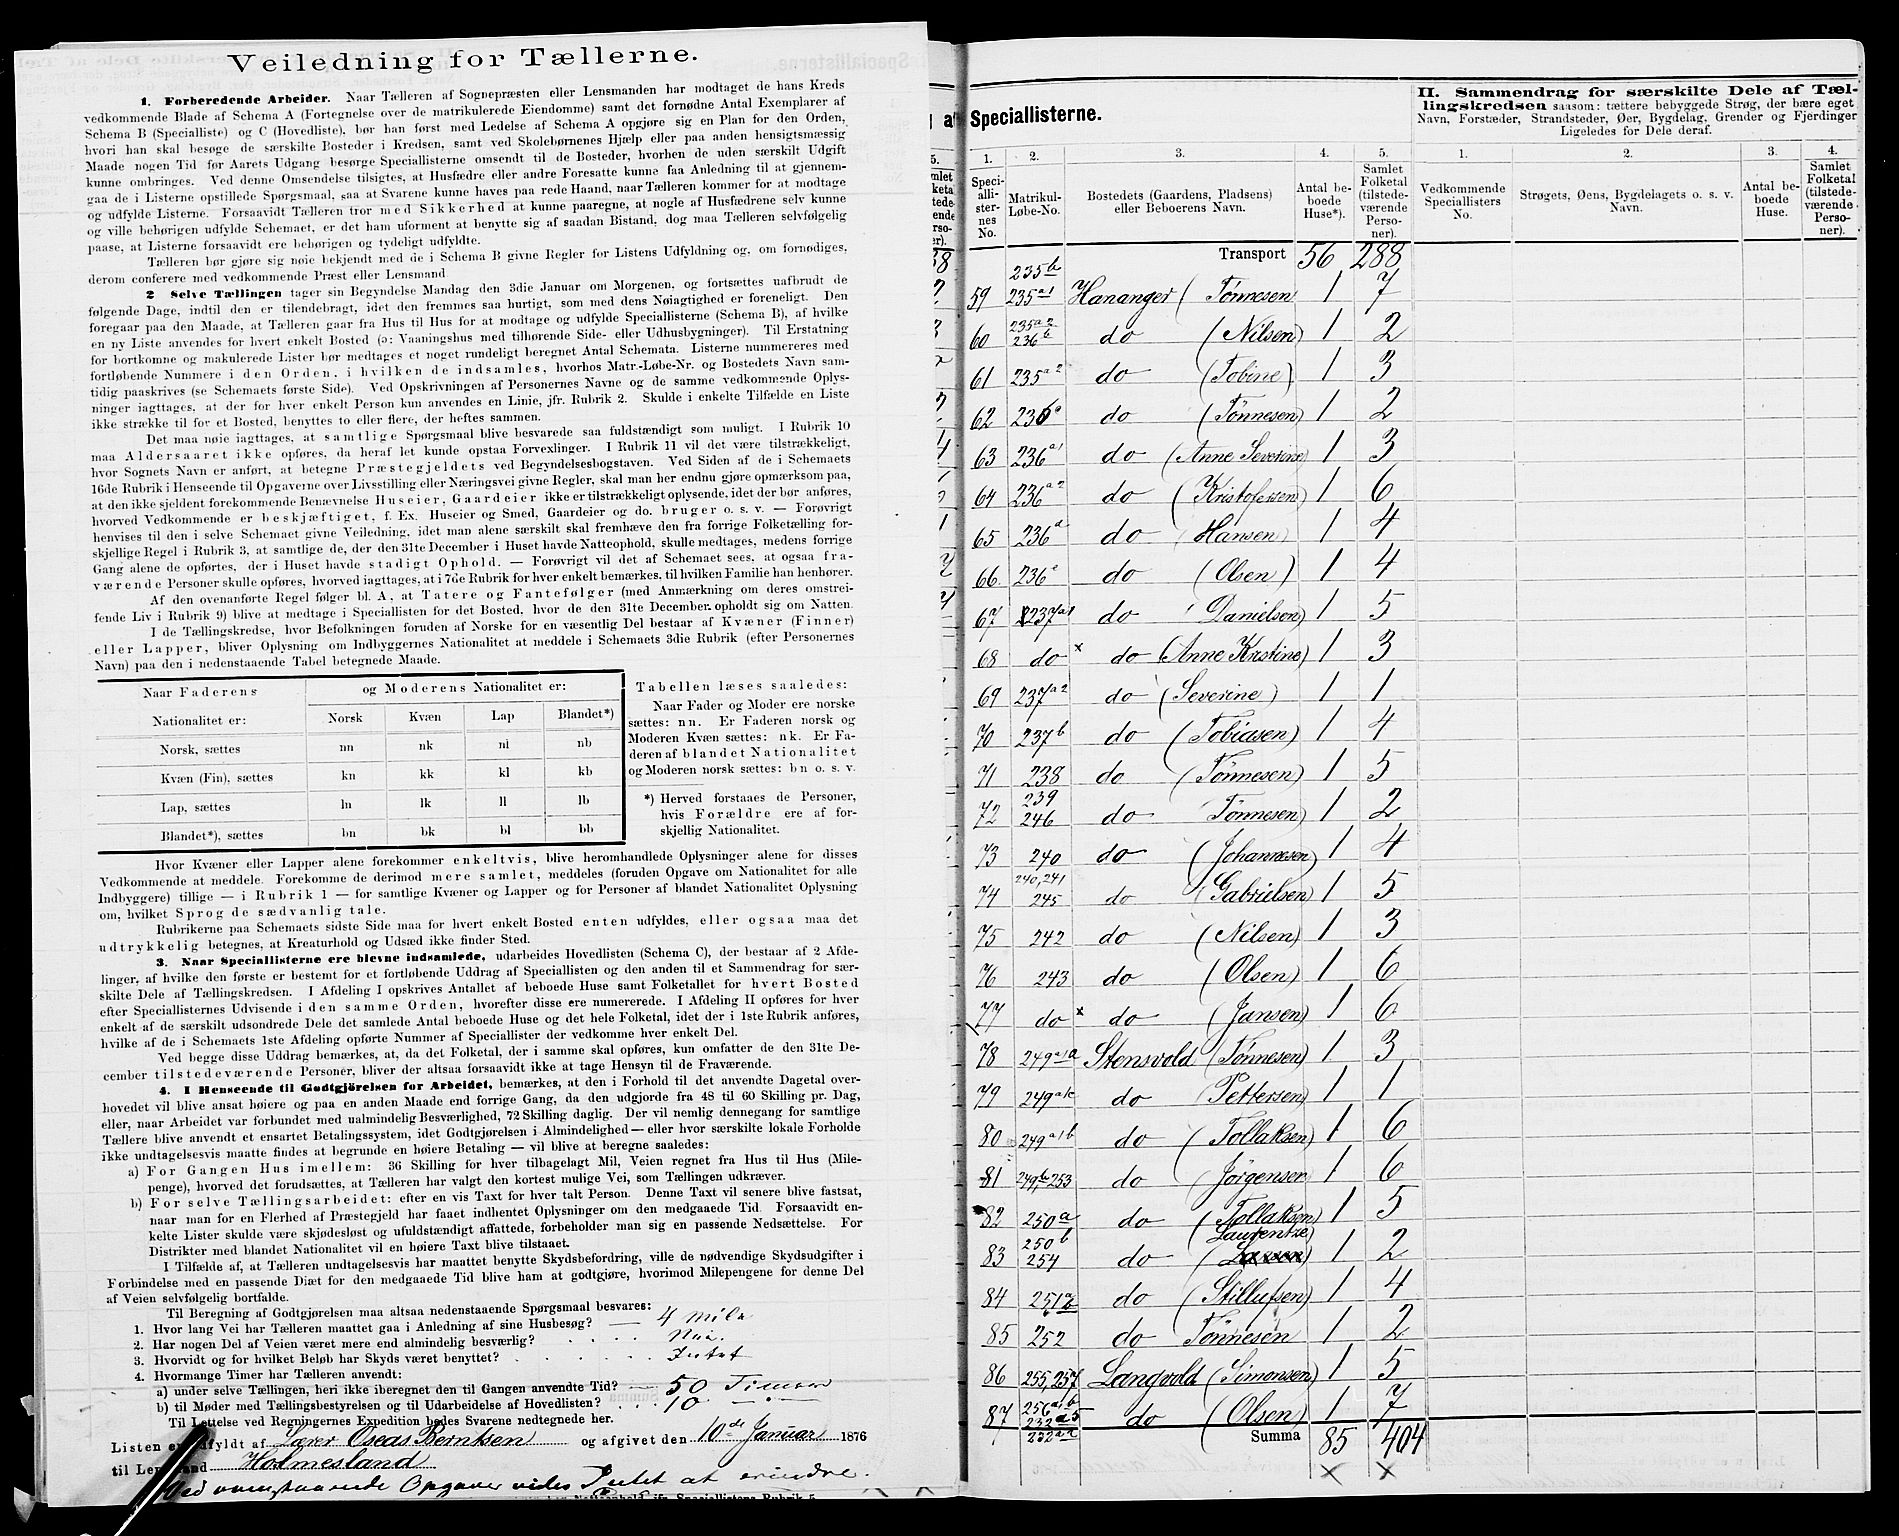 Veiledning for Tællerne.
1. Forberedende Arbeider. Naar Tælleren af Sognepræsten eller Lensmanden har modtaget de hans Kreds
vedkommende Blade af Schema A (Fortegnelse over de matrikulerede Eiendomme) samt det fornødne Antal Exemplarer af
Schema B (Specialliste) og C (Hovedliste), bør han først med Ledelse af Schema A opgjøre sig en Plan for den Orden,
hvori han skal besøge de særskilte Bosteder i Kredsen, samt ved Skolebørnenes Hjælp eller paa anden hensigtsmæssig
Maade nogen Tid før Aarets Udgang besørge Speciallisterne omsendt til de Bosteder, hvorhen de uden særskilt Udgift
kunne ombringes. Ved denne Omsendelse tilsigtes, at Husfædre eller andre Foresatte kunne faa Anledning til at gjennem-
gaa de i Listerne opstillede Spørgsmaal, saa at Svarene kunne haves paa rede Haand, naar Tælleren kommer for at modtage
og udfylde Listerne. Forsaavidt Tælleren tror med Sikkerhed at kunne paaregne, at nogle af Husfædrene selv kunne
og ville behørigen udfylde Schemaet, er det ham uforment at benytte sig af saadan Bistand, dog maa Tælleren selvfølgelig
paase, at Listerne forsaavidt ere behørigen og tydeligt udfyldte.
Tælleren bør gjøre sig nøie bekjendt med de i Schema B givne Regler for Listens Udfyldning og, om fornødiges,
derom conferere med vedkommende Præst eller Lensmand
2 Selve Tællingen tager sin Begyndelse Mandag den 3die Januar om Morgenen, og fortsættes uafbrudt de
følgende Dage, indtil den er tilendebragt, idet den fremmes saa hurtigt, som med dens Nøiagtighed er foreneligt. Den
foregaar paa den Maade, at Tælleren gaar fra Hus til Hus for at modtage og udfylde Speciallisterne (Schema B), af hvilke
en ny Liste anvendes for hvert enkelt Bosted (ɔ: Vaaningshus med tilhørende Side- eller Udhusbygninger). Til Erstatning
for bortkomne og makulerede Lister bør medtages et noget rundeligt beregnet Antal Schemata. Listerne nummereres med
fortløbende Nummere i den Orden, i hvilken de indsamles, hvorhos Matr.-Løbe-Nr. og Bostedets Navn sam-
tidig paaskrives (se Schemaets første Side). Ved Opskrivningen af Personernes Navne og de samme vedkommende Oplys-
ninger iagttages, at der for hver enkelt Person kun anvendes en Linie, jfr. Rubrik 2. Skulde i enkelte Tilfælde en Liste
ikke strække til for et Bosted, benyttes to eller flere, der heftes sammen.
Det maa nøie iagttages, at samtlige Spørgsmaal blive besvarede saa fuldstændigt som muligt. I Rubrik 10
maa Aldersaaret ikke opføres, da heraf let kunde opstaa Forvexlinger. I Rubrik 11 vil det være tilstrækkeligt,
hvor Sognets Navn er anført, at betegne Præstegjeldets ved Begyndelsesbogstaven. Ved Siden af de i Schemaets
16de Rubrik i Henseende til Opgaverne over Livsstilling eller Næringsvei givne Regler, skal man her endnu gjøre opmærksom paa,
at den ikke sjeldent forekommende Benævnelse Huseier, Gaardeier ikke er tilstrækkeligt oplysende, idet der bør anføres,
hvorved Vedkommende er beskjæftiget, f. Ex. Huseier og Smed, Gaardeier og do. bruger o. s. v. — Forøvrigt
henvises til den i selve Schemaet givne Veiledning, idet man alene særskilt skal fremhæve den fra forrige Folketælling for-
skjellige Regel i Rubrik 3, at samtlige de, der den 31te December i Huset havde Natteophold, skulle medtages, medens forrige
Gang alene de opførtes, der i Huset havde stadigt Ophold. — Forøvrigt vil det af Schemaet sees, at ogsaa fra-
værende Personer skulle opføres, hvorved iagttages, at i 7de Rubrik for hver enkelt bemærkes, til hvilken Familie han henhører.
Af den ovenanførte Regel følger bl. A, at Tatere og Fantefølger (med Anmærkning om deres omstrei-
fende Liv i Rubrik 9) blive at medtage i Speciallisten for det Bosted, hvor de den 31te December. opholdt sig om Natten.
I de Tællingskredse, hvor Befolkningen foruden af Norske for en væsentlig Del bestaar af Kvæner (Finner)
eller Lapper, bliver Oplysning om Indbyggernes Nationalitet at meddele i Schemaets 3die Rubrik (efter Personernes
Navn) paa den i nedenstaaende Tabel betegnede Maade.
Naar Faderens og Moderens Nationalitet er:
Nationalitet er: Norsk Kvæn Lap Blandet*)
Norsk, sættes nn nk nl nb
Kvæn (Fin), sættes kn kk kl kb
Lap, sættes ln lk ll lb
Blandet*), sættes bn bk bl bb
Tabellen læses saaledes:
Naar Fader og Moder ere norske
sættes: nn. Er Faderen norsk og
Moderen Kvæn sættes: nk. Er Fa-
deren af blandet Nationalitet
og Moderen norsk sættes: bn o. s. v.
*) Herved forstaaes de Personer,
hvis Forældre ere af for-
skjellig Nationalitet.
Hvor Kvæner eller Lapper alene forekommer enkeltvis, blive heromhandlede Oplysninger alene for disses
Vedkommende at meddele. Forekomme de derimod mere samlet, meddeles (foruden Opgave om Nationalitet for alle
Indbyggere) tillige — i Rubrik 1 — for samtlige Kvæner og Lapper og for Personer af blandet Nationalitet Oplysning
om, hvilket Sprog de sædvanlig tale.
Rubrikerne paa Schemaets sidste Side maa for hvert enkelt Bosted enten udfyldes, eller ogsaa maa det
udtrykkelig betegnes, at Kreaturhold og Udsæd ikke finder Sted.
3. Naar Speciallisterne ere blevne indsamlede, udarbeides Hovedlisten (Schema C), der bestaar af 2 Afde-
linger, af hvilke den første er bestemt for et fortløbende Uddrag af Speciallisten og den anden til et Sammendrag for sær-
skilte Dele af Tællingskredsen. I Afdeling I opskrives Antallet af beboede Huse samt Folketallet for hvert Bosted
efter Speciallisternes Udvisende i den samme Orden, hvorefter disse ere numererede. I Afdeling II opføres for hver
enkelt af de særskilt udsondrede Dele det samlede Antal beboede Huse og det hele Folketal, idet der i 1ste Rubrik anføres,
hvilke af de i Schemaets 1ste Afdeling opførte Nummer af Speciallister der vedkomme hver enkelt Del.
Ved begge disse Uddrag bemærkes, at, da det Folketal, der i samme skal opføres, kun omfatter de den 31te De-
cember tilstedeværende Personer, bliver der altsaa forsaavidt ikke at tage Hensyn til de Fraværende.
4. I Henseende til Godtgjörelsen for Arbeidet, bemærkes, at den i Forhold til det anvendte Dagetal over-
hovedet vil blive ansat høiere og paa en anden Maade end forrige Gang, da den udgjorde fra 48 til 60 Skilling pr. Dag,
eller, naar Arbeidet var forbundet med ualmindelig Besværlighed, 72 Skilling daglig. Der vil nemlig dennegang for samtlige
Tællere blive anvendt et ensartet Betalingssystem, idet Godtgjørelsen i Almindelighed — eller hvor særskilte lokale Forholde
ikke undtagelsesvis maatte findes at begrunde en høiere Betaling — vil blive at beregne saaledes:
a) For Gangen Hus imellem: 36 Skilling for hver tilbagelagt Mil, Veien regnet fra Hus til Hus (Mile-
penge), hvorved det forudsættes, at Tælleren har valgt den kortest mulige Vei, som Tællingen udkræver.
b) For selve Tællingsarbeidet: efter en vis Taxt for hver talt Person. Denne Taxt vil senere blive fastsat,
naar man for en Flerhed af Præstegjeld har faaet indhentet Oplysninger om den medgaaede Tid. Forsaavidt en-
kelte Lister skulde være skjødesløst og ufuldstændigt affattede, forbeholder man sig en passende Nedsættelse. For
Distrikter med blandet Nationalitet vil en høiere Taxt blive tilstaaet.
I Tilfælde af, at Tælleren undtagelsesvis har maattet benytte Skydsbefordring, ville de nødvendige Skydsudgifter i
Forbindelse med en passende Diæt for den medgaaede Tid blive ham at godtgjøre, hvorimod Milepengene for denne Del
af Veien selvfølgelig bortfalde.
Til Beregning af Godtgjørelsen maa altsaa nedenstaaende Spørgsmaal besvares:
1. Hvor lang Vei har Tælleren maattet gaa i Anledning af sine Husbesøg? — 4 Mile
2. Har nogen Del af Veien været mere end almindelig besværlig? Nei.
3. Hvorvidt og for hvilket Beløb har Skyds været benyttet? Intet
4. Hvormange Timer har Tælleren anvendt:
a) under selve Tællingen, heri ikke iberegnet den til Gangen anvendte Tid? — 50 Timer
b) til Møder med Tællingsbestyrelsen og til Udarbeidelse af Hovedlisten? 10 — " —
Til Lettelse ved Regningernes Expedition bedes Svarene nedtegnede her.
Listen er udfyldt af Lærer Oseas Berntsen og afgivet den 10de Januar 1876
til Lensmand Holmesland
Ved ovenstaaende Opgaver vides Intet at erindre.
Speciallisterne.
1. 2. 3. 4. 5.
Speci-alli-ster-nes No. Matrikul-Løbe-No. Bostedets (Gaardens, Pladsens) eller Beboerens Navn. Antal be-boede Huse*). Samlet Folketal (tilstede-værende Perso-ner).
II. Sammendrag for særskilte Dele af Tæl-
lingskredsen saasom: tættere bebyggede Strøg, der bære eget
Navn, Forstæder, Strandsteder, Øer, Bygdelag, Grender og Fjerdinger
Ligeledes for Dele deraf.
1. 2. 3. 4.
Vedkommende Speciallisters No. Strøgets, Øens, Bygdelagets o. s. v. Navn. Antal be-boede Huse. Samlet Folketal (tilstede-værende Perso-ner).
Transport 56 288
59 235b 235a1 Hananger (Tønnesen) 1 7
60 235a2 236b do (Nilsen) 1 2
61 235a2 do (Tobine) 1 3
62 236a do (Tönnesen) 1 2
63 236a1 do (Anne Severine) 1 3
64 236a2 do (Kristofersen) 1 6
65 236a do (Hansen) 1 4
66. 236a do (Olsen) 1 4
67 237a1 do (Danielsen) 1 5
68 do x do (Anne Kristine) 1 3
69 237a2 do (Severine) 1 1
70 237b do (Tobiasen) 1 4
71 238 do (Tönnesen) 1 5
72 239 246 do Tönnesen) 1 2
73 240 do (Johannesen) 1 4
74 240, 241 245 do (Gabrielsen) 1 5
75 242 do (Nilsen) 1 3
76 243 do (Olsen) 1 6
77 do x do (Jansen) 1 6
78 249a1a Stensvold (Tönnesen) 1 3
79 249a1c do (Pettersen) 1 1
80 249a1b do (Tollaksen) 1 6
81 253 do (Jörgensen) 1 6
82 250a do (Tollaksen) 1 5
83 250b 254 do (Laurentze) 1 2
84 251 do (Stillufsen) 1 4
85 252 do Tönnesen 1 2
86 255, 257 Langvold (Simonsen) 1 5
87 256a1b 232a5 232a2 do (Olsen) 1 7
Summa 85 404
x x